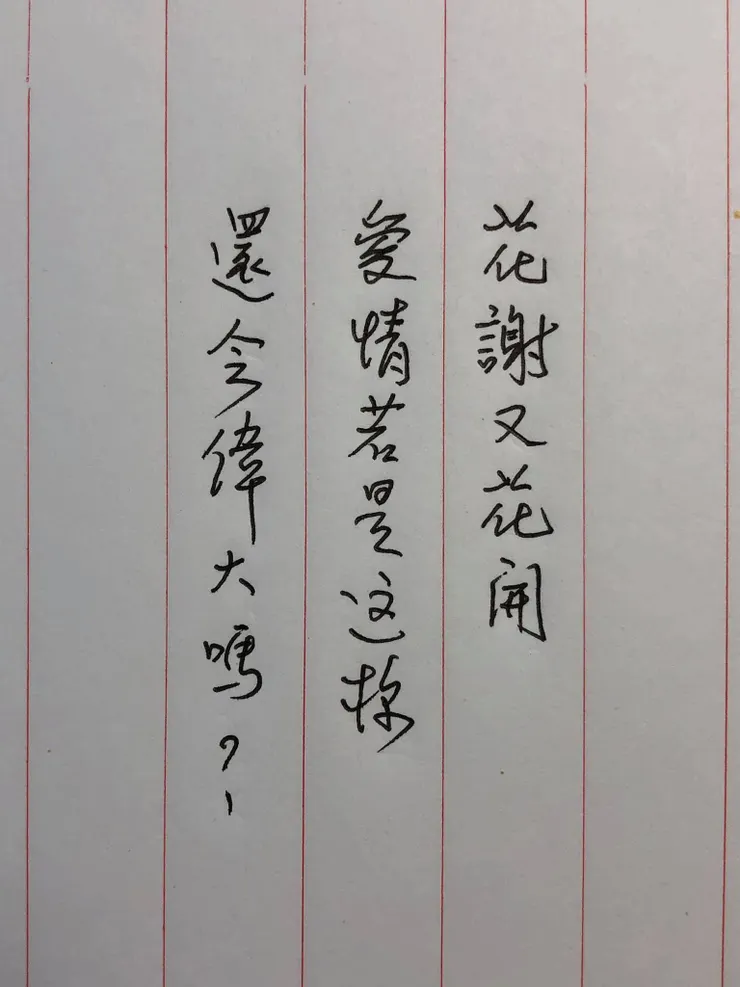 花謝又花開
愛情若是这樣
還会偉大嗎？